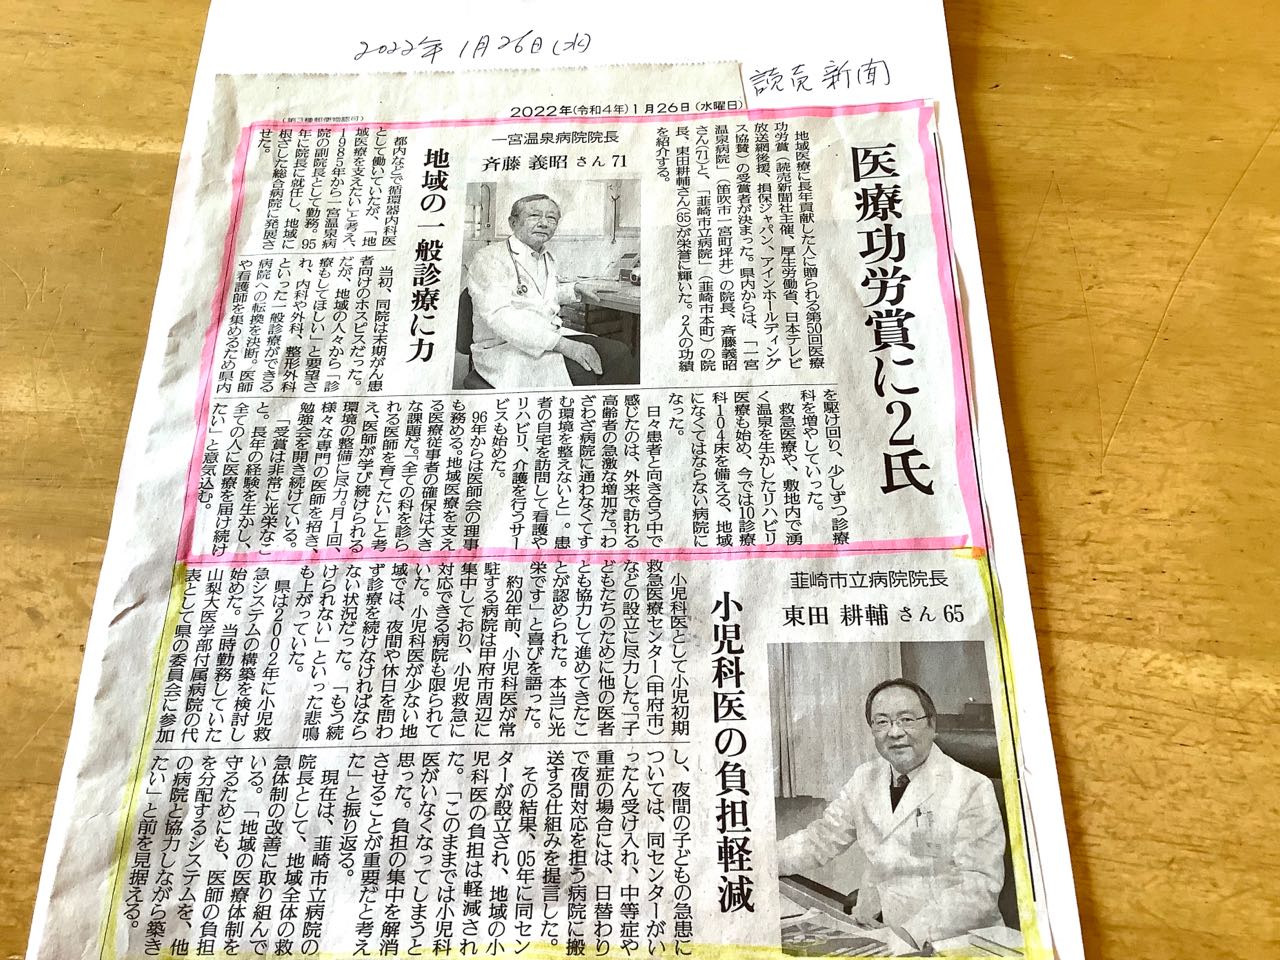 2022年1月26日(水)
読売新聞
(第3種郵便物認可)
2022年(令和4年)1月26日(水曜日)
医療功労賞に2氏
地域医療に長年貢献した人に贈られる第50回医療
功労賞(読売新聞社主催、厚生労働省、日本テレビ
放送網後援、損保ジャパン、アインホールディング
ス協賛)の受賞者が決まった。県内からは、「一宮
温泉病院」(笛吹市一宮町坪井)の院長、斉藤義昭
さん(71)と、「韮崎市立病院」(韮崎市本町)の院
長、東田耕輔さん(65)が栄誉に輝いた。2人の功績
を紹介する。
一宮温泉病院院長
斉藤 義昭 さん 71
地域の一般診療に力
都内などで循環器内科医
として働いていたが、「地
域医療を支えたい」と考え、
1985年から一宮温泉病
院の副院長として勤務。95
年に院長に就任し、地域に
根ざした総合病院に発展さ
せた。
当初、同院は末期がん患
者向けのホスピスだった。
だが、地域の人々から「診
療もしてほしい」と要望さ
れ、内科や外科、整形外科
といった一般診療ができる
病院への転換を決断。医師
や看護師を集めるため県内
を駆け回り、少しずつ診療
科を増やしていった。
救急医療や、敷地内で湧
く温泉を生かしたリハビリ
医療も始め、今では10診療
科104床を備える、地域
になくてはならない病院に
なった。
日々患者と向き合う中で
感じたのは、外来で訪れる
高齢者の急激な増加だ。「わ
ざわざ病院に通わなくてす
む環境を整えないと」。患
者の自宅を訪問して看護や
リハビリ、介護を行うサー
ビスも始めた。
96年からは医師会の理事
も務める。地域医療を支え
る医療従事者の確保は大き
な課題だ。「全ての科を診ら
れる医師を育てたい」と考
え、医師が学び続けられる
環境の整備に尽力。月1回、
様々な専門の医師を招き、
勉強会を開き続けている。
「受賞は非常に光栄なこ
と。長年の経験を生かし、
全ての人に医療を届け続け
たい」と意気込む。
韮崎市立病院院長
東田 耕輔 さん 65
小児科医の負担軽減
小児科医として小児初期
救急医療センター(甲府市)
などの設立に尽力した。「子
どもたちのために他の医者
とも協力して進めてきたこ
とが認められた。本当に光
栄です」と喜びを語った。
約20年前、小児科医が常
駐する病院は甲府市周辺に
集中しており、小児救急に
対応できる病院も限られて
いた。小児科医が少ない地
域では、夜間や休日を問わ
ず診療を続けなければなら
ない状況だった。「もう続
けられない」といった悲鳴
も上がっていた。
県は2002年に小児救
急システムの構築を検討し
始めた。当時勤務していた
山梨大医学部付属病院の代
表として県の委員会に参加
し、夜間の子どもの急患に
ついては、同センターがい
ったん受け入れ、中等症や
重症の場合には、日替わり
で夜間対応を担う病院に搬
送する仕組みを提言した。
その結果、05年に同セン
ターが設立され、地域の小
児科医の負担は軽減され
た。「このままでは小児科
医がいなくなってしまうと
思った。負担の集中を解消
させることが重要だと考え
た」と振り返る。
現在は、韮崎市立病院の
院長として、地域全体の救
急体制の改善に取り組んで
いる。「地域の医療体制を
守るためにも、医師の負担
を分配するシステムを、他
の病院と協力しながら築き
たい」と前を見据える。